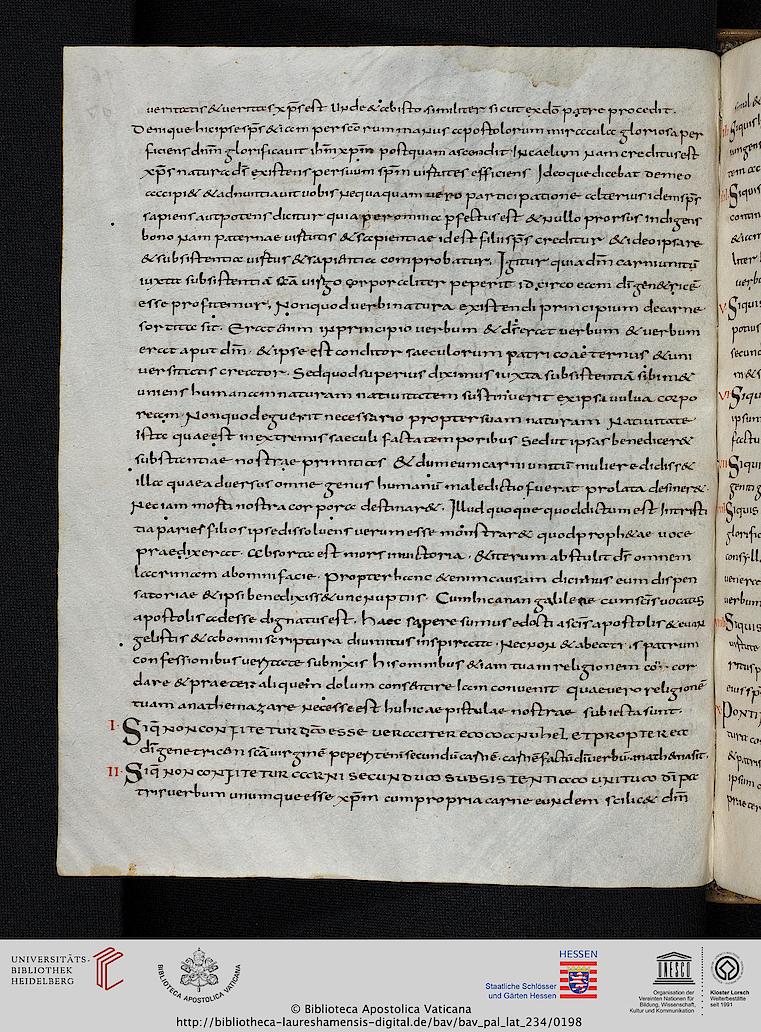 veritatis & veritas xps est Unde & ab isto similiter sicut ex do patre procedit.
Denique hic ipse sps & iam per scorum manus apostolorum miracula gloriosa per
ficiens dnm glorificavit ihm xpm postquam ascendit in caelum Nam creditus est
xps natura ds existens per suum spm virtutes efficiens Ideoque dicebat de meo
accipi& & adnuntiavit vobis Nequaquam vero participatione alterius idem sps
sapiens aut potens dicitur quia per omnia pfectus est & nullo prorsus indigens
bono Nam paternae virtutis & sapientiae id est filii sps creditur & ideo ipsa re
& subsistentia virtus & sapientia comprobatur. Igitur quia dm carni unitu
iuxta subsistentia sca virgo corporaliter peperit idcirco eam di gen&rice
esse profitemur. Non quod verbi natura existendi principium de carne
sortita sit. Erat enim in principio verbum & ds erat verbum & verbum
erat aput dm. & ipse est conditor saeculorum patri coaeternus & uni
versitatis creator. Sed quod superius diximus iuxta subsistentia sibim&
uniens humanam naturam nativitatem sustinuerit ex ipsa vulva corpo
ream. Non quod eguerit necessario propter suam naturam Nativitate
ista quae est in extremis saeculi facta temporibus Sed ut ipsas benedicer&
substantiae nostrae primitias & dum eum carni unitu mulier edidiss&
illa quae adversus omne genus humanu maledictio fuerat prolata desiner&.
Nec iam morti nostra corpora destinar&. Illud quoque quod dictum est In tristi
tia paries filios ipse dissolvens verum esse monstrar& quod proph&ae voce
praedixerat. Absorta est mors in victoria. & iterum abstulit ds omnem
lacrimam ab omni facie. Propter hanc & enim causam dicimus eum dispen
satoriae & ipsi benedixiss& nuptiis. Cum in canan galileae cum scis vocatus
apostolis adesse dignatus est. haec sapere sumus edocti a scis apostolis & evan
gelistis & ab omni scriptura divinitus inspirata. Necnon & a beatis patrum
confessionibus veritate subnixis his omnibus &iam tuam religionem cor
dare & praeter aliquem dolum consentire iam convenit quae vero religione
tuam anathemazare necesse est huic ae pistulae nostrae subiecta sunt.
I. Siq non confitetur dm esse veraciter emmanuhel et propterea
di genetricem scam virgine peperit enim secundu carne. carne factu di verbu. anathema sit.
II. Siq non confitetur carni secundum subsistentiam unitum di pa
tris verbum unumque esse xpm cum propria carne eundem scilic& dm
UNIVERSITÄTS-
BIBLIOTHEK
HEIDELBERG
BIBLIOTHECA APOSTOLICA VATICANA
HESSEN
Staatliche Schlösser
und Gärten Hessen
UNESCO
Organisation der
Vereinten Nationen für
Bildung, Wissenschaft,
Kultur und Kommunikation
Kloster Lorsch
Welterbestätte
seit 1991
© Biblioteca Apostolica Vaticana
http://bibliotheca-laureshamensis-digital.de/bav/bav_pal_lat_234/0198